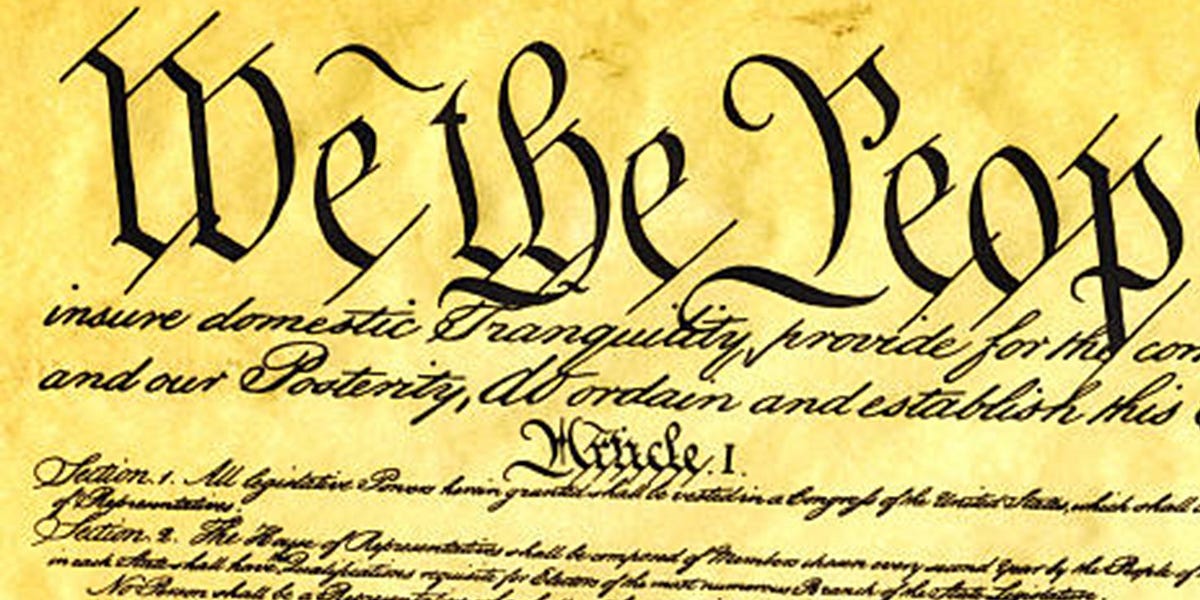 We the Peop
insure domestic Tranquility, provide for the com
and our Posterity, do ordain and establish this
Article. I.
Section. 1. All legislative Powers herein granted shall be vested in a Congress of the United States, which shall
of Representatives.
Section. 2. The House of Representatives shall be composed of Members chosen every second Year by the People of
in each State shall have the Qualifications requisite for Electors of the most numerous Branch of the State Legislature.
No Person shall be a Representative